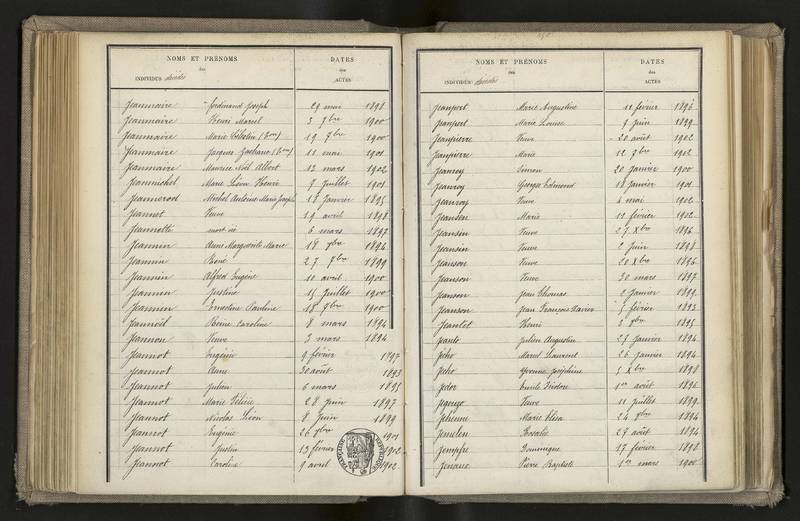 NOMS ET PRÉNOMS
des
INDIVIDUS décédés
DATES
des
ACTES
Jeanmaire Ferdinand Joseph 29 mai 1898
Jeanmaire Henri Marcel 3 7bre 1900
Jeanmaire Marie Célestin 19 7bre 1900
Jeanmaire Jacques 11 mai 1901
Jeanmaire Maurice Noël Albert 13 mars 1902
Jeanmichel Marie Léon Henri 7 Juillet 1901
Michel Antoine Marie Joseph 18 Janvier 1895
Jeannet Veuve 19 avril 1898
mort né 6 mars 1897
Jeannin Anne Marguerite Marie 18 1894
Jeannin René 27 7bre 1899
Jeannin Alfred Eugène 10 avril 1900
Jeannin Justine 15 Juillet 1900
Jeannin Ernestine Pauline 18 9bre 1900
Jeannoël Reine Caroline 8 mars 1894
Jeannon Veuve 3 mars 1894
Jeannot Eugénie 9 février 1897
Jeannot Anne 30 août 1893
Jeannot Julien 6 mars 1895
Jeannot Marie Félicie 28 Juin 1897
Jeannot Nicolas Léon 8 Juin 1899
Jeannot Eugénie 26 1901
Jeannot Justin 13 février 1902
Jeannot Caroline 9 avril 1902
NOMS ET PRÉNOMS
des
INDIVIDUS décédés
DATES
des
ACTES
Jeanport Marie Augustine 11 février 1896
Jeanport Marie Louise 7 Juin 1899
Jeanpierre Veuve 20 août 1902
Jeanpierre Marie 12 7bre 1902
Jeanroy Simon 20 Janvier 1900
Jeanroy Georges Edmond 18 Janvier 1901
Jeanroy Veuve 4 mai 1902
Marie 11 février 1902
Jeansin Veuve 27 Xbre 1896
Jeansin Veuve 2 Juin 1898
Jeanson Veuve 20 Xbre 1896
Jeanson Veuve 30 mars 1897
Jeanson Jean Thomas 2 Janvier 1899
Jeanson Jean François Xavier 5 février 1893
Henri 3 1895
Julien Augustin 27 Janvier 1894
Marcel Laurent 26 Janvier 1894
Yvonne Joséphine 5 Xbre 1898
Emile Isidore 1er août 1896
Veuve 11 Juillet 1899
Marie Elisa 24 1894
Rosalie 27 août 1894
Dominique 17 février 1898
Pierre Baptiste 1er mars 1900